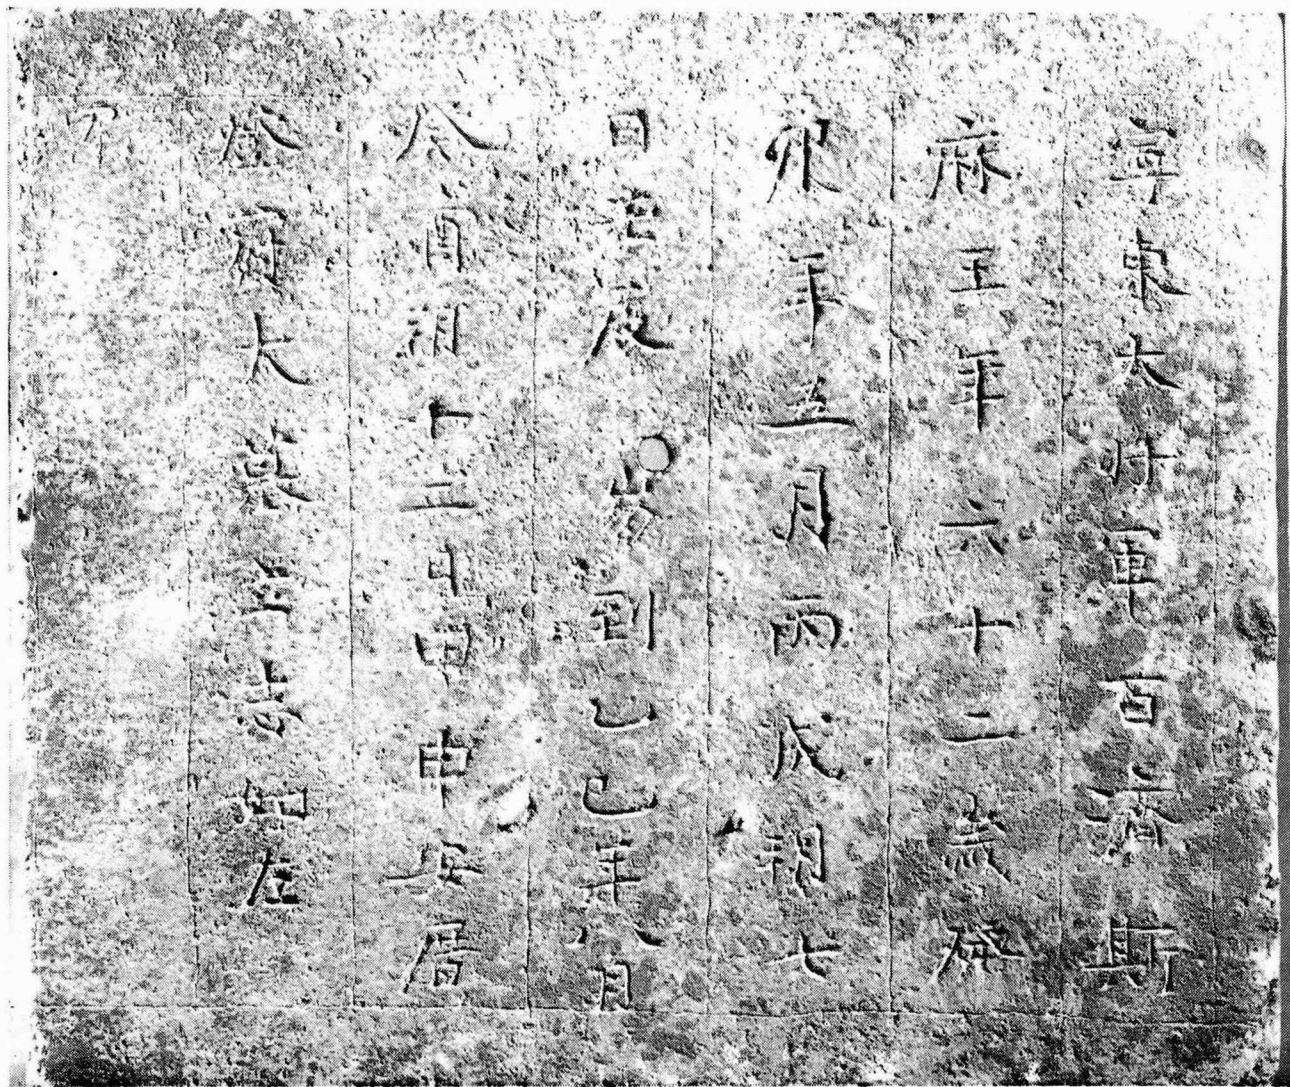 寧東大将軍百濟斯
麻王年六十二歲癸
卯年五月丙戌朔七
日壬辰崩到乙巳年八月
癸酉朔十二日甲申安厝
登冠大墓立志如左